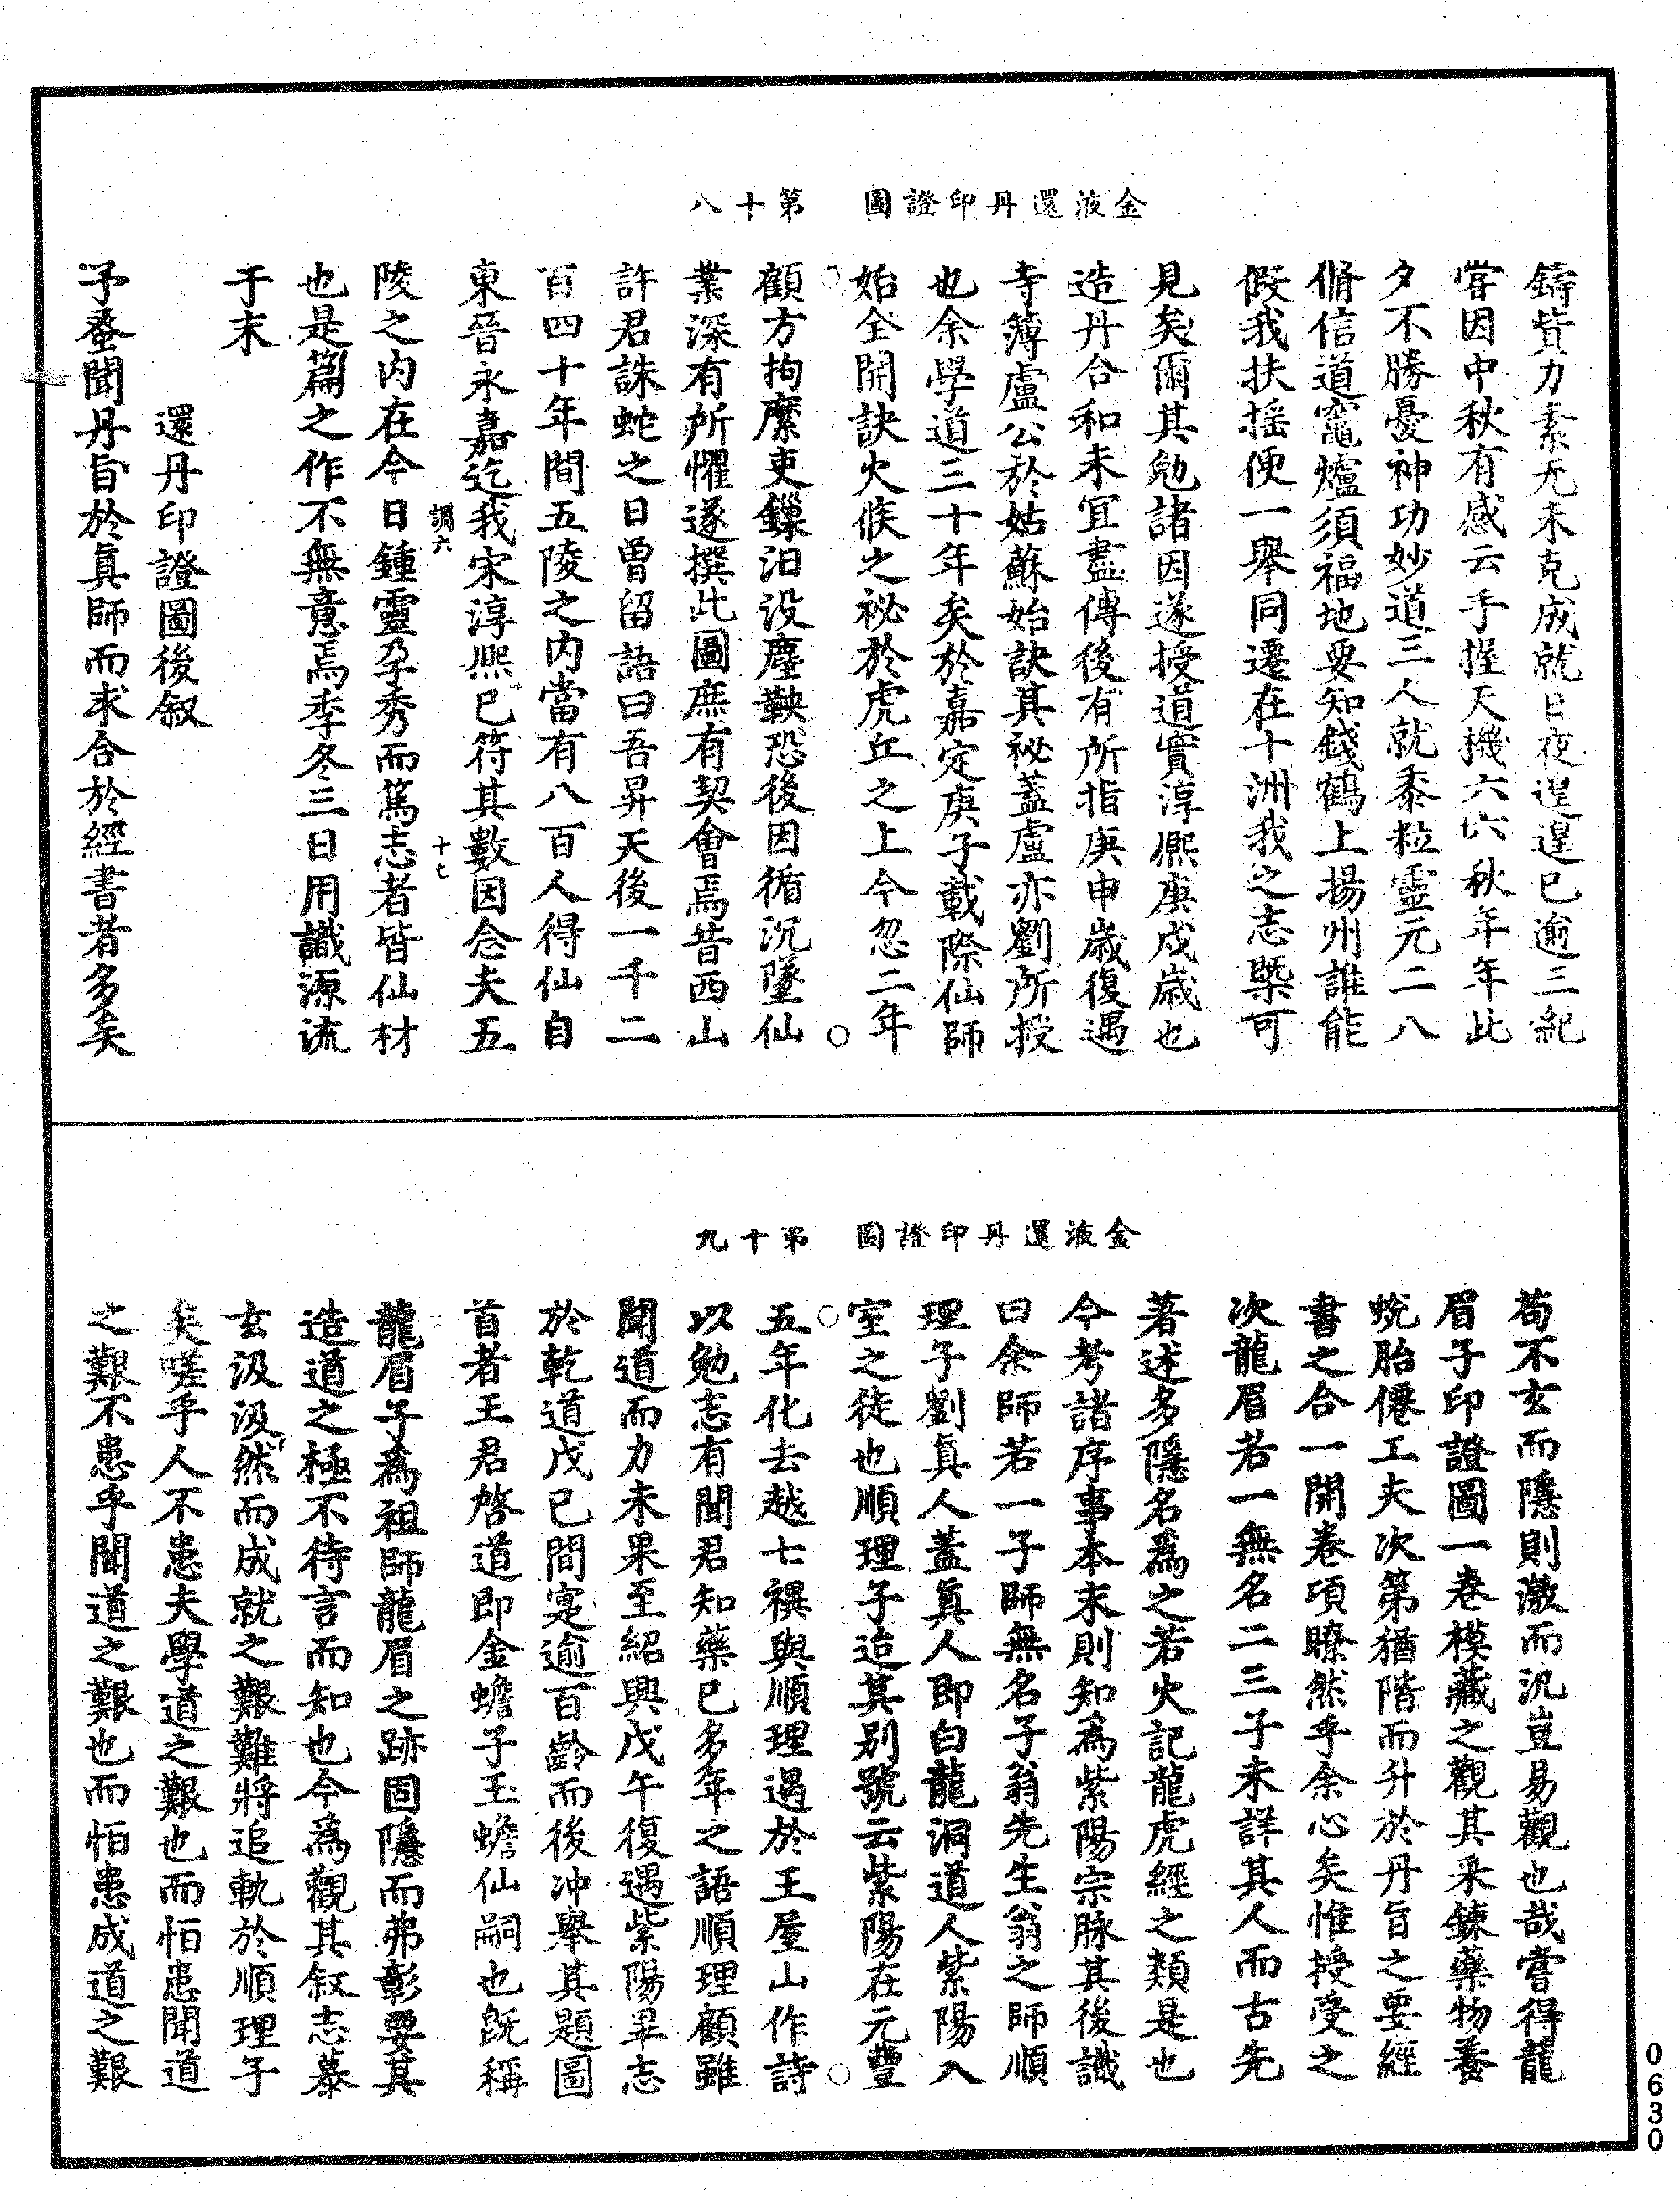 金液還丹印證圖　第十八
鑄貲力素无未克成就日夜遑遑已逾三紀
嘗因中秋有感云手握天機六六秋年年此
夕不勝憂神功妙道三人就黍粒靈元二八
脩信道竈爐須福地要知錢鶴上揚州誰能
假我扶搖便一舉同遷在十洲我之志槩可
見矣爾其勉諸因遂授道實淳熙庚戌歲也
造丹合和未宜盡傳後有所指庚申歲復遇
寺簿盧公於姑蘇始訣其祕蓋盧亦劉所授
也余學道三十年矣於嘉定庚子載際仙師
始全開訣火候之祕於虎丘之上今忽二年
顧方拘縻吏鏁汩没塵鞅恐後因循沉墜仙
業深有所懼遂撰此圖庶有契會焉昔西山
許君誅蛇之日曾留語曰吾昇天後一千二
百四十年間五陵之内當有八百人得仙自
東晉永嘉迄我宋淳熙已符其數因念夫五
調六
十七
陵之内在今日鍾靈孕秀而篤志者皆仙材
也是篇之作不無意焉季冬三日用識源流
于末
還丹印證圖後叙
予蚤聞丹旨於真師而求合於經書者多矣
金液還丹印證圖　第十九
苟不玄而隱則激而汎豈易觀也哉嘗得龍
眉子印證圖一卷模藏之觀其采錬藥物養
蛻胎僊工夫次第猶階而升於丹旨之要經
書之合一開卷項瞭然乎余心矣惟授受之
次龍眉若一無名二三子未詳其人而古先
著述多隱名爲之若火記龍虎經之類是也
今考諸序事本末則知爲紫陽宗脉其後識
曰余師若一子師無名子翁先生翁之師順
理子劉真人蓋真人即白龍洞道人紫陽入
室之徒也順理子迨其别號云紫陽在元豐
五年化去越七禩與順理遇於王屋山作詩
以勉志有聞君知藥已多年之語順理顧雖
聞道而力未果至紹興戊午復遇紫陽畢志
於乾道戊已間寔逾百齡而後冲舉其題圖
首者王君啓道即金蟾子玉蟾仙嗣也旣稱
龍眉子爲祖師龍眉之跡固隱而弗彰要其
造道之極不待言而知也今爲觀其叙志慕
玄汲汲然而成就之艱難將追軌於順理子
矣嗟乎人不患夫學道之艱也而怕患聞道
之艱不患乎聞道之艱也而怕患成道之艱
0630